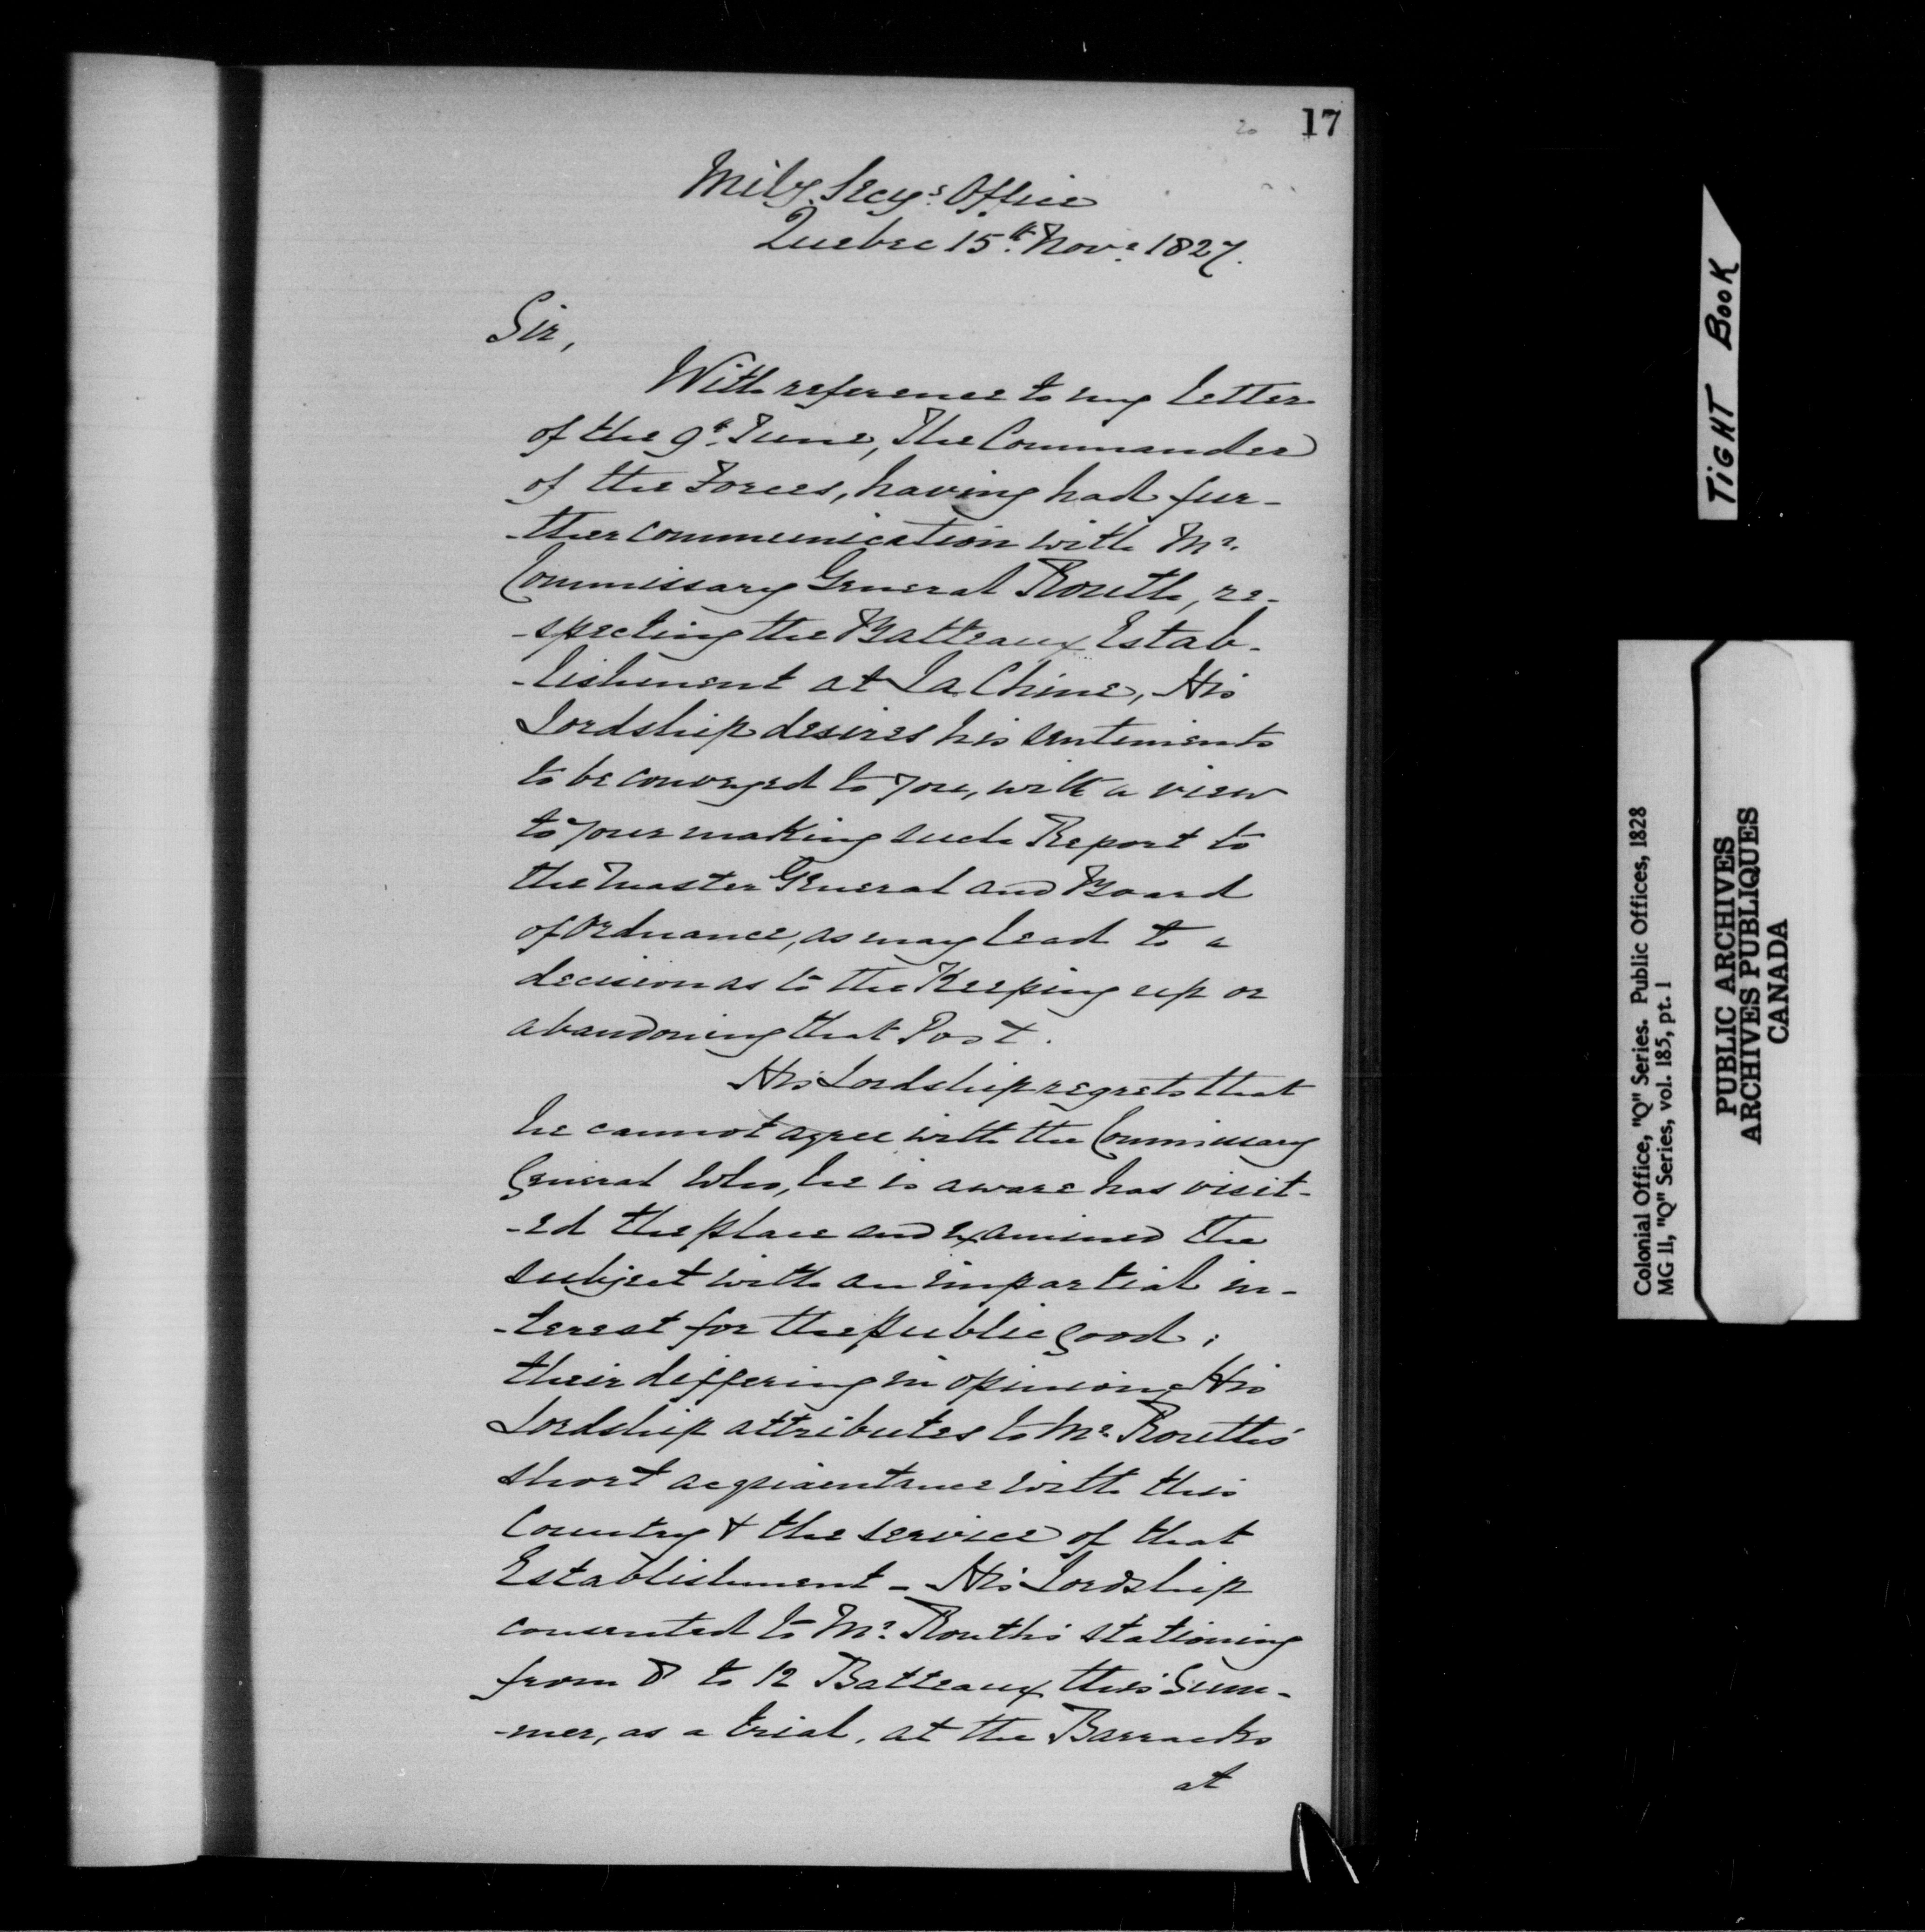 20 17
Mily. Secy's. Office
Quebec 15th. Novr. 1827.
Sir,
With reference to my letter
of the 9th. June, The Commander
of the Forces, having had fur-
-ther communication with Mr.
Commissary General Routh, re-
-specting the Batteaux Estab-
-lishment at La Chine, His
Lordship desires his sentiments
to be conveyed to you, with a view
to your making such Report to
the Master General and Board
of Ordnance, as may lead to a
decision as to the Keeping up or
abandoning that Post.
His Lordship regrets that
he cannot agree with the Commissary
General who, he is aware has visit-
-ed the place and examined the
subject with an impartial in-
-terest for the public good;
their differing in opinion, His
Lordship attributes to Mr. Routh's
short acquaintance with this
Country & the service of that
Establishment - His Lordship
consented to Mr. Routh's stationing
from 8 to 12 Batteaux this Sum-
-mer, as a trial, at the Barracks
at
TIGHT BOOK
Colonial Office, "Q" Series. Public Offices, 1828
MG 11, "Q" Series, vol. 185, pt. 1
PUBLIC ARCHIVES
ARCHIVES PUBLIQUES
CANADA